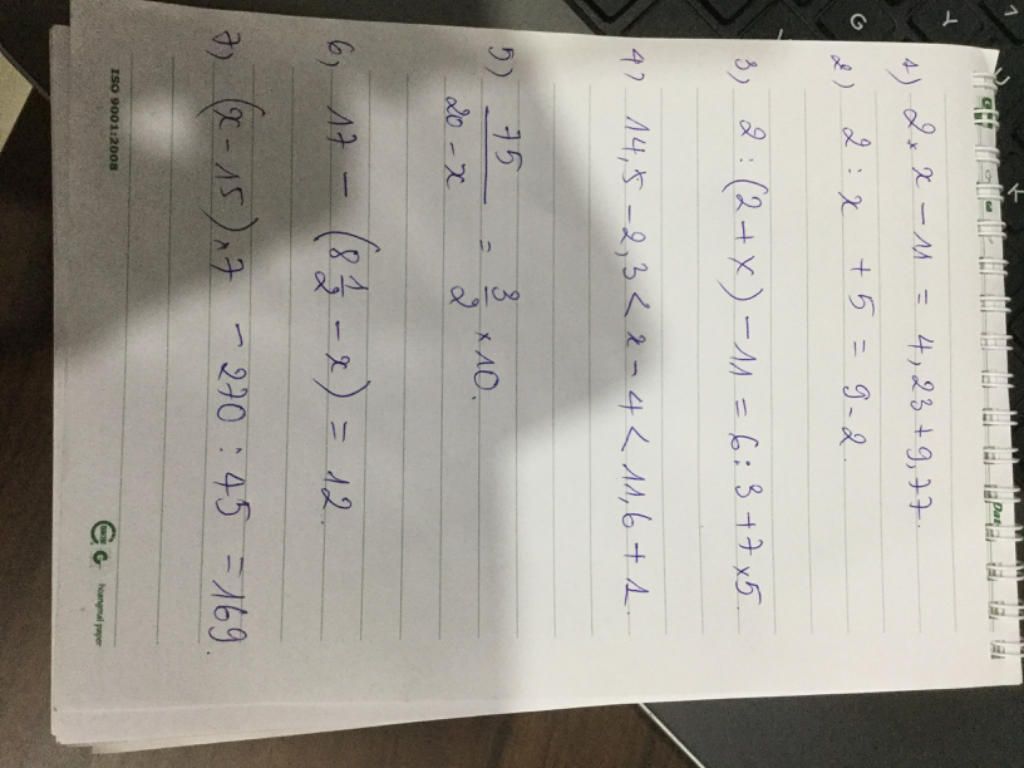 Dat
1) 2 × x - 11 = 4,23 + 9,77.
2) 2 : x + 5 = 9 - 2.
3) 2 : (2 + x) - 11 = 6 : 3 + 7 × 5.
4) 14,5 - 2,3 < x - 4 < 11,6 + 1.
5) 75/(20 - x) = 3/2 × 10.
6) 17 - (8 1/2 - x) = 12.
7) (x - 15) × 7 - 270 : 45 = 169.
ISO 9001:2008